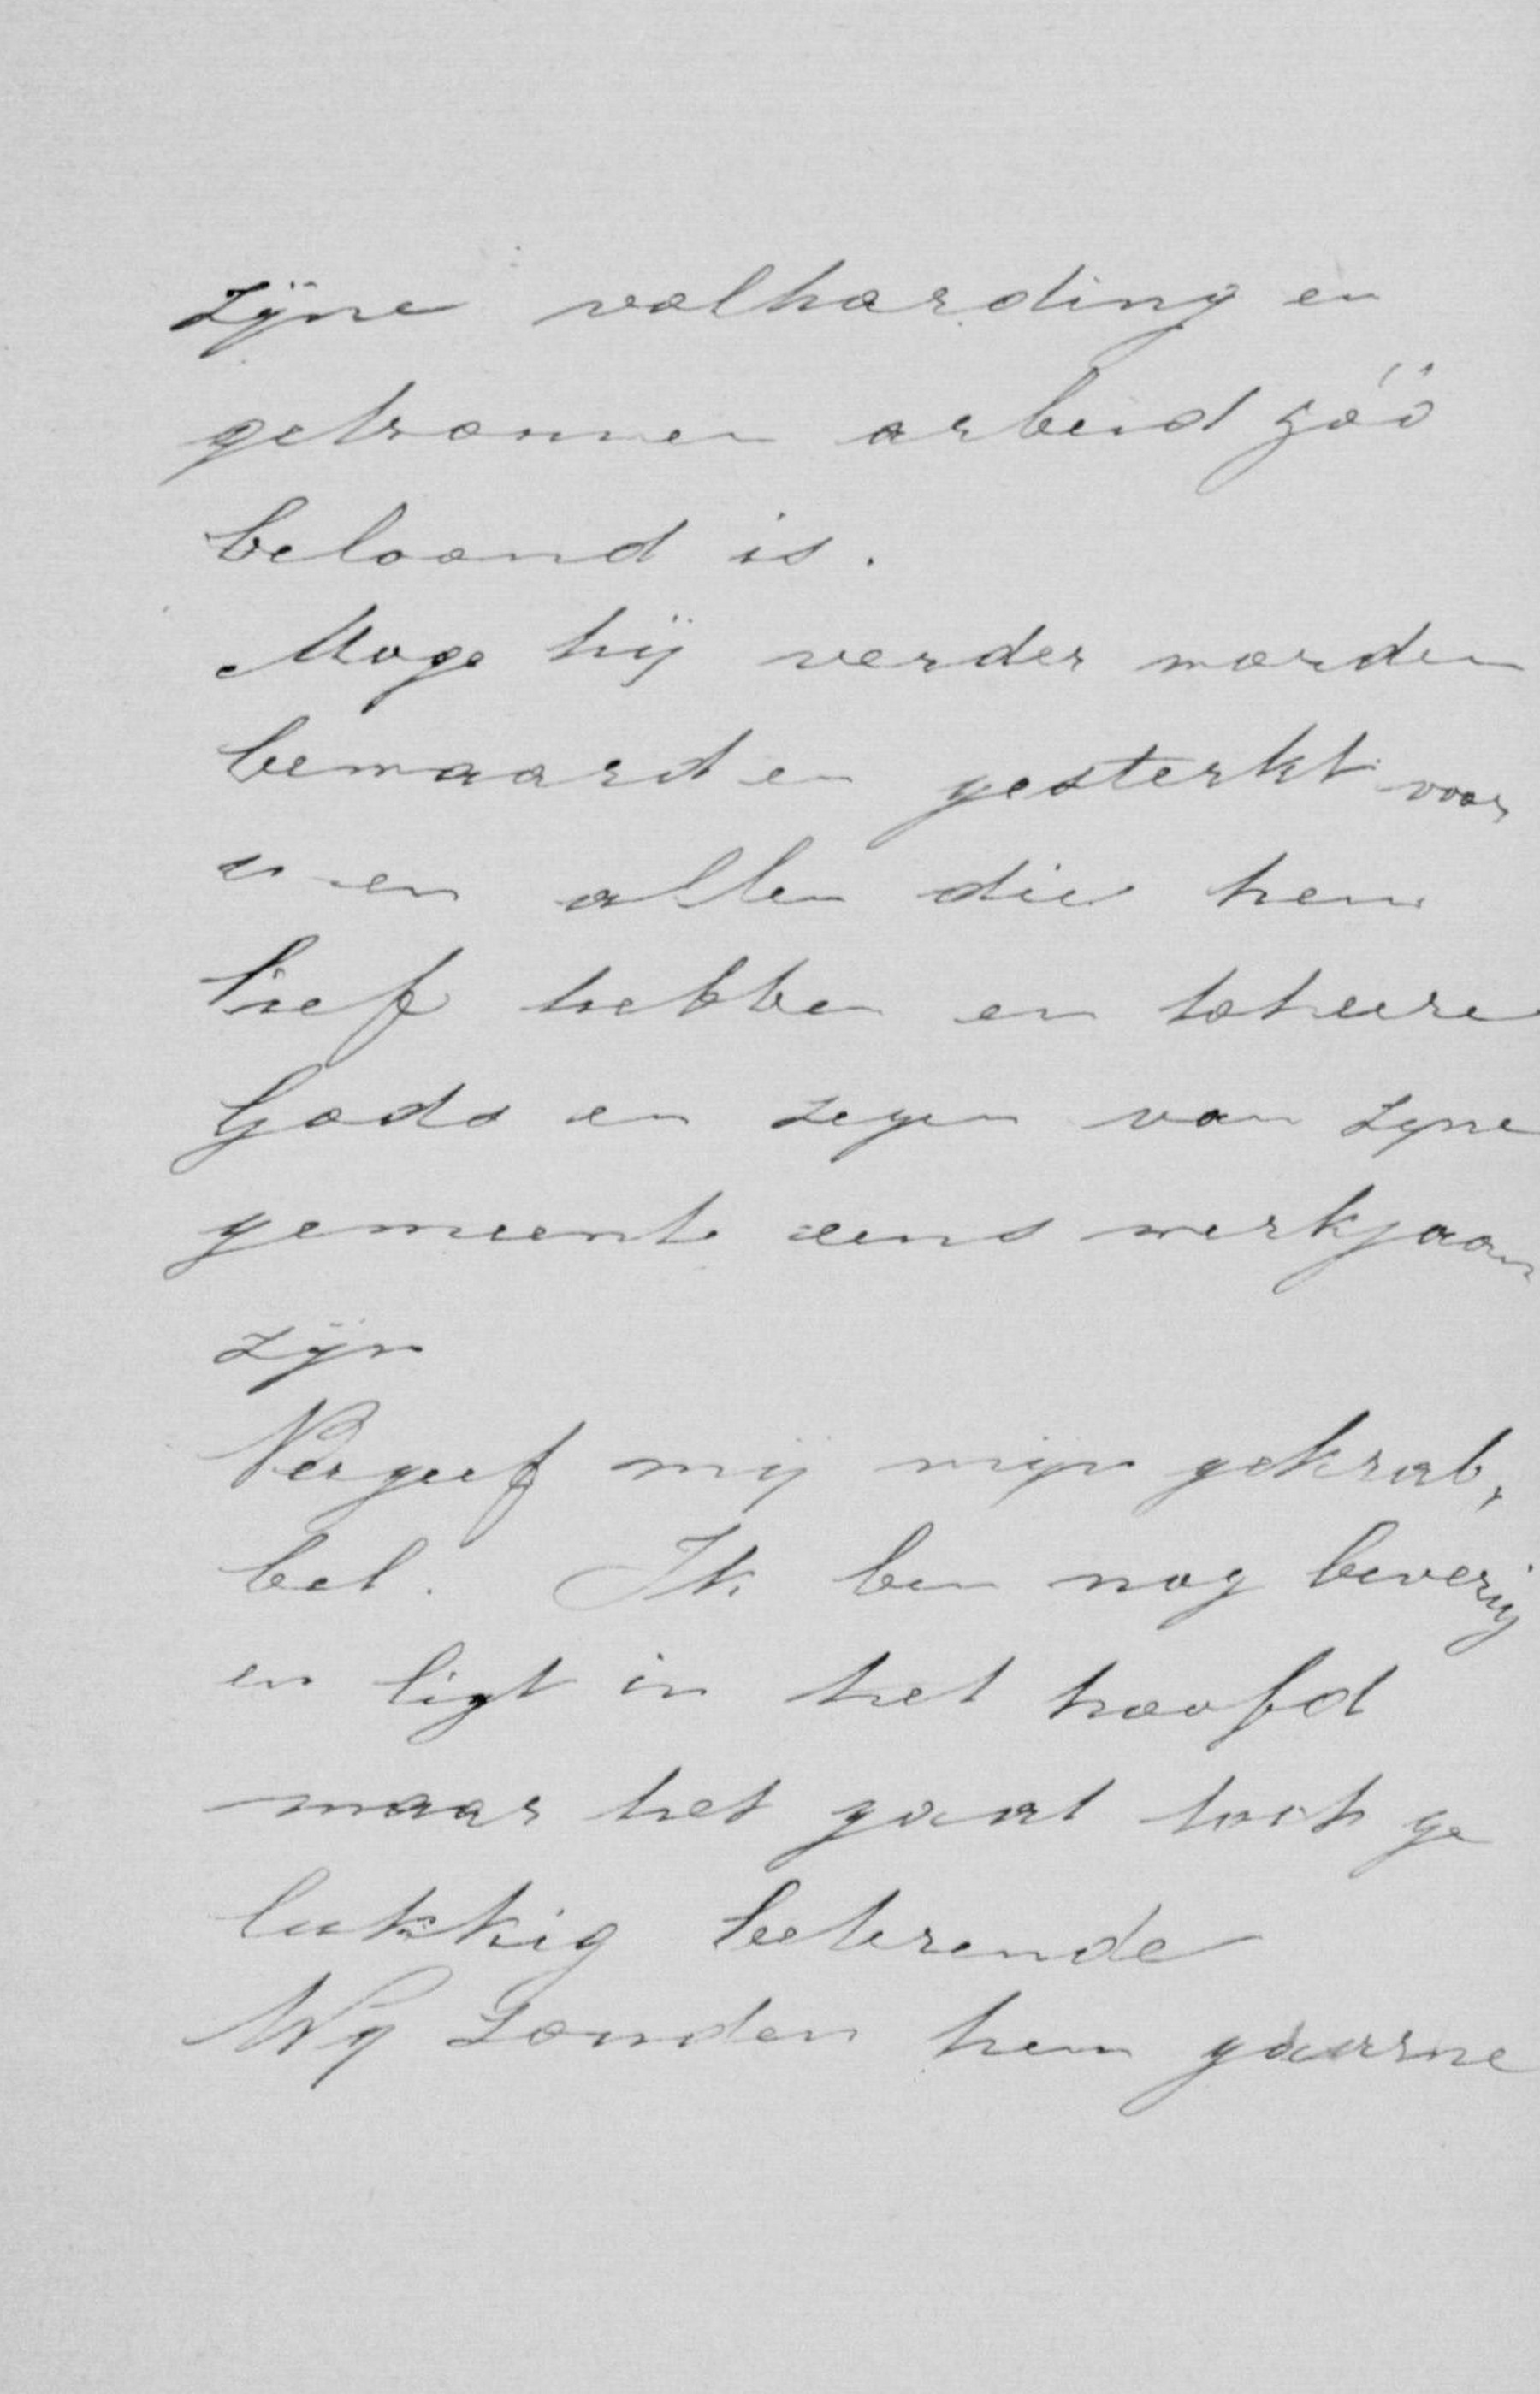 zijne volharding en
getrouwen arbeid zóó
beloond is.
Moge hij verder worden
bewaard en gesterkt voor
u en allen die hem
lief hebben en tot eere
Gods en zegen van zyne
gemeente eens werkzaam
zijn
Vergeef mij mijn gekrab,
bel. Ik ben nog beverig
en ligt in het hoofd
maar het gaat toch ge
lukkig beterende
Wy zouden hem gaarne